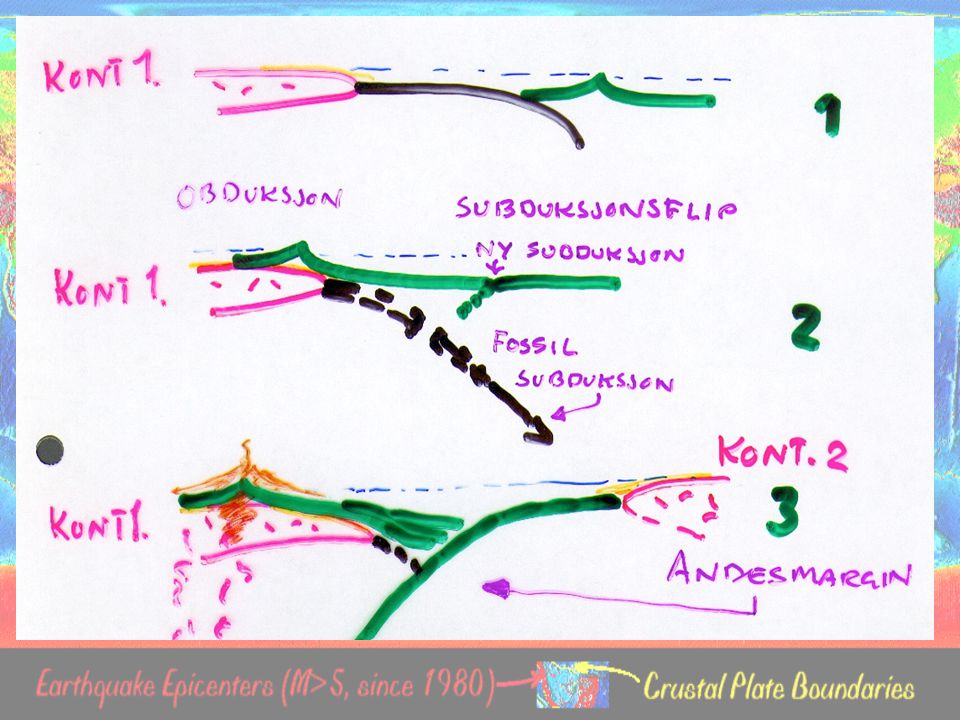 KONT 1.
1
OBDUKSJON
SUBDUKSJONSFLIP
NY SUBDUKSJON
KONT 1.
2
FOSSIL
SUBDUKSJON
KONT. 2
KONT1.
3
ANDESMARGIN
Earthquake Epicenters (M>5, since 1980)
Crustal Plate Boundaries